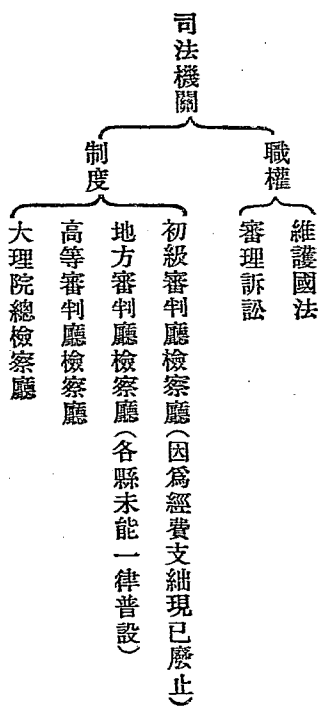 司法機關
職權
維護國法
審理訴訟
制度
初級審判廳檢察廳(因爲經費支絀現已廢止)
地方審判廳檢察廳(各縣未能一律普設)
高等審判廳檢察廳
大理院總檢察廳